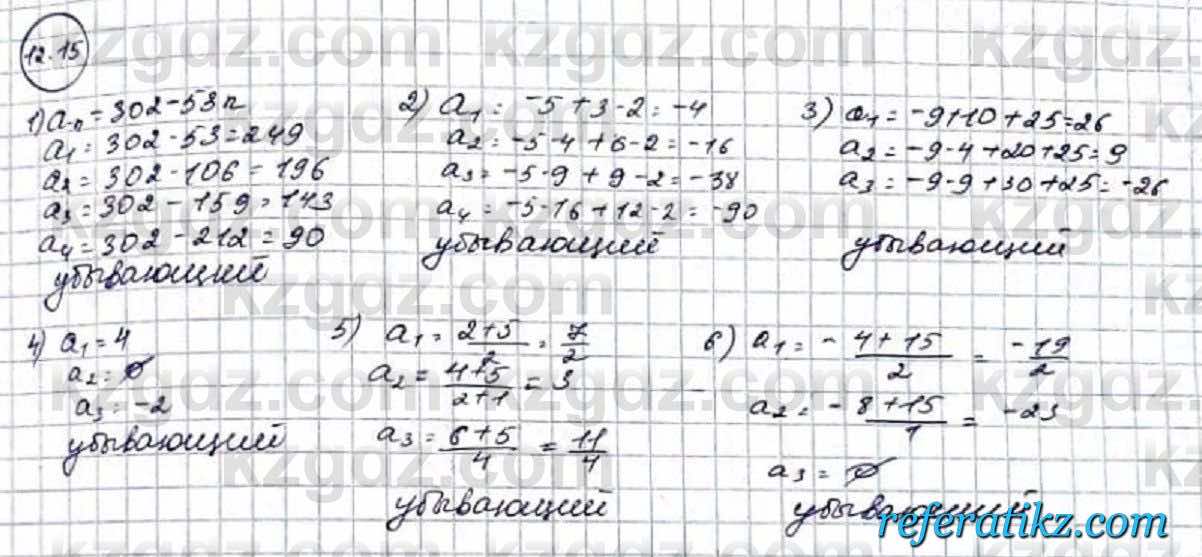 12.15
1) aₙ = 302 - 53n
a₁ = 302 - 53 = 249
a₂ = 302 - 106 = 196
a₃ = 302 - 159 = 143
a₄ = 302 - 212 = 90
убывающий
2) a₁ = -5 + 3 - 2 = -4
a₂ = -5·4 + 6 - 2 = -16
a₃ = -5·9 + 9 - 2 = -38
a₄ = -5·16 + 12 - 2 = -90
убывающий
3) a₁ = -9 + 10 + 25 = 26
a₂ = -9·4 + 20 + 25 = 9
a₃ = -9·9 + 30 + 25 = -26
убывающий
4) a₁ = 4
a₂ = ∅
a₃ = -2
убывающий
5) a₁ = (2+5)/2 = 7/2
a₂ = (4+5)/(2+1) = 3
a₃ = (6+5)/4 = 11/4
убывающий
6) a₁ = - (4+15)/2 = -19/2
a₂ = - (8+15)/1 = -23
a₃ = ∅
убывающий
kzgdz.com
referatikz.com